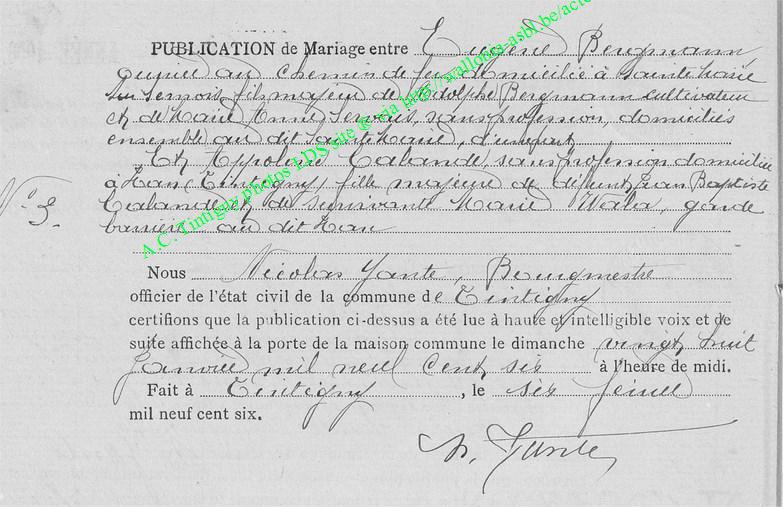 PUBLICATION de Mariage entre Eugène Bergmann
ouvrier au chemin de fer, domicilié à Sainte Marie
sur Semois, fils majeur de Adolphe Bergmann cultivateur
et de Marie Anne Servais, sans profession, domiciliés
ensemble au dit Sainte Marie, d'une part,
Et Hyppolite Calande, sans profession domiciliée
à Han, Tintigny fille majeure de défunt Jean Baptiste
N° 3. Calande et de survivante Marie garde
barrière au dit Han
Nous Nicolas Yante, Bourgmestre
officier de l'état civil de la commune de Tintigny
certifions que la publication ci-dessus a été lue à haute et intelligible voix et de
suite affichée à la porte de la maison commune le dimanche vingt huit
Janvier mil neuf cent six à l'heure de midi.
Fait à Tintigny, le six
mil neuf cent six.
N. Yante
A.C. Tintigny photos LDS site ® via http://wallonia-asbl.be/acte